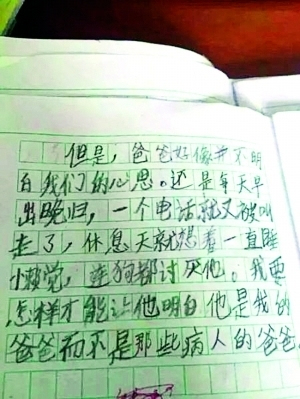 但是，爸爸好像并不明
白我们的心思。还是每天早
出晚归，一个电话就又被叫
走了，休息天就想着一直睡
懒觉，连狗都讨厌他。我要
怎样才能让他明白他是我的
爸爸而不是那些病人的爸爸。